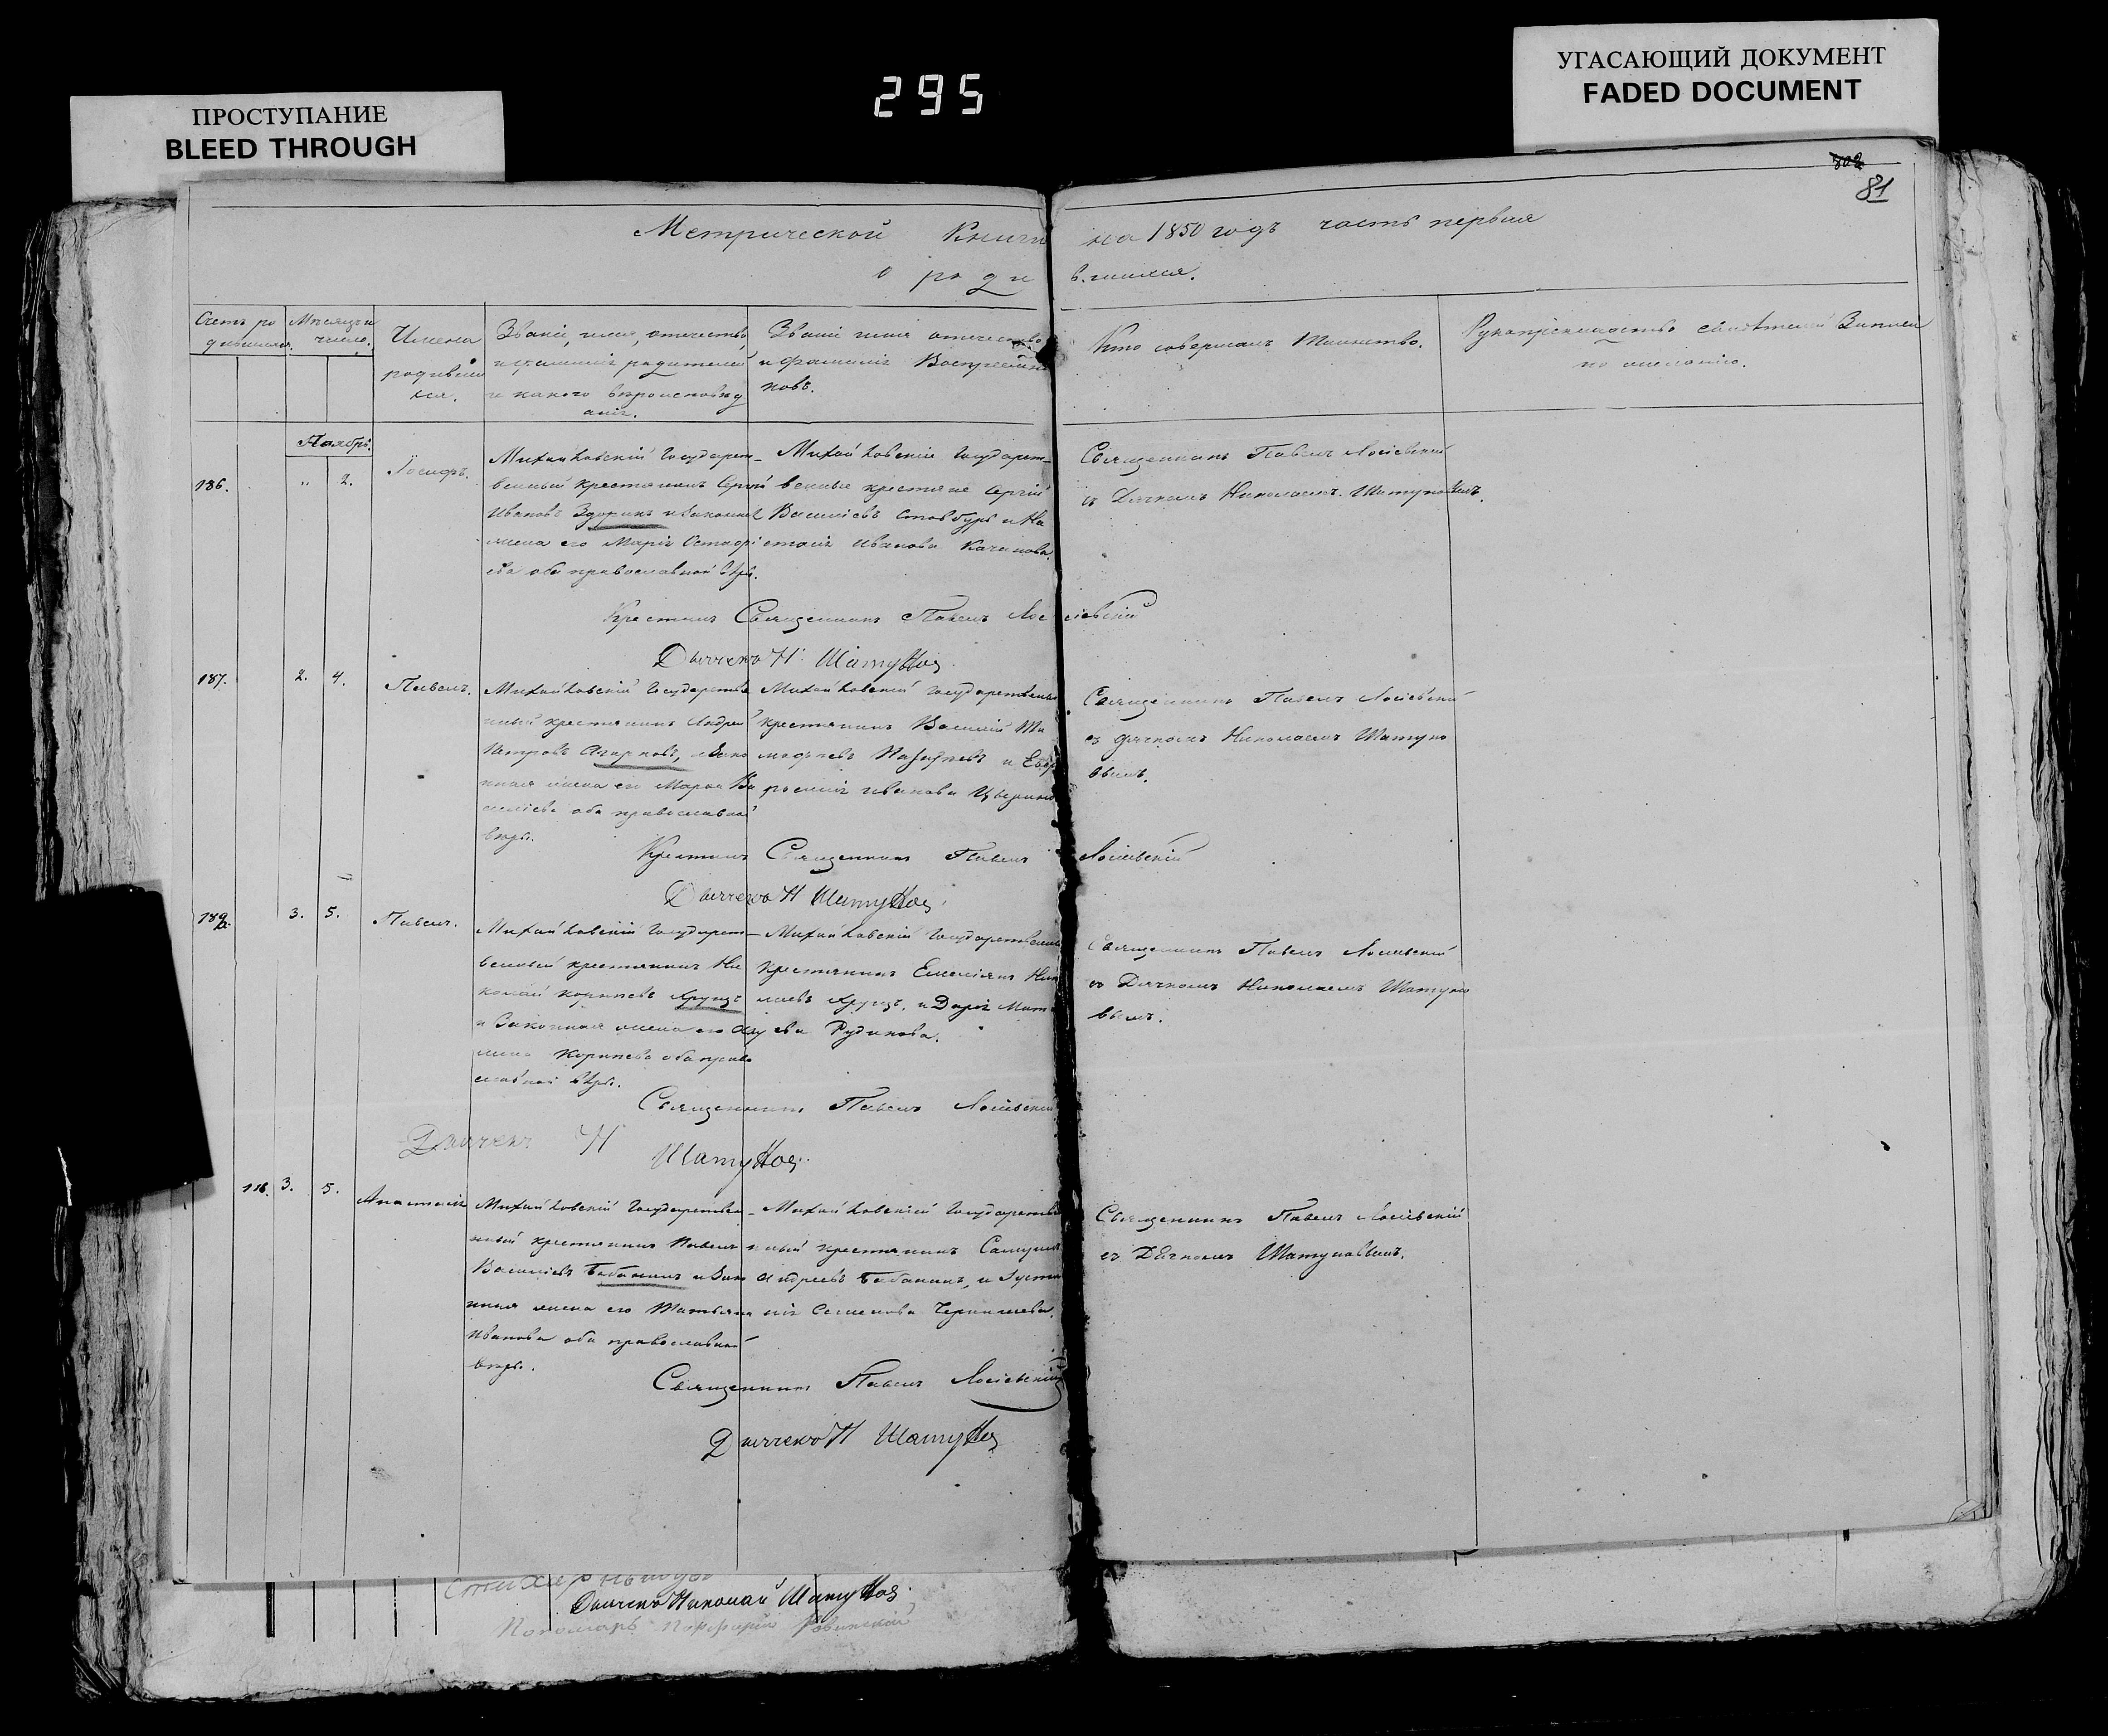 ПРОСТУПАНИЕ
BLEED THROUGH
295
УГАСАЮЩИЙ ДОКУМЕНТ
FADED DOCUMENT
302
81
Метрической Книги на 1850 годъ часть первая
о роди вшихся.
Счетъ ро дившихся.
Мѣсяцъ и число.
Имена родивших ся.
Званіе, имя, отчество
и фамилія родителей
и какого вѣроисповѣд
анія.
Званіе имя отчество
и фамилія Воспріемни
ковъ.
Кто совершалъ Таинство.
Рукоприкладство свидѣтелей Записи
по желанію.
Ноябрь.
186. " 2. Іосифъ.
Михайловскій Государст-
венный крестьянинъ Сергій
Ивановъ Здоринъ и законная
жена его Марія Остафі
ева оба православной вѣры.
Михайловскіе Государст-
венные крестьяне Сергій
Василіевъ Столбуръ и На
стасія Иванова Качанова.
Священникъ Павелъ Лосіевскій
съ Дячкомъ Николаемъ Шатуновымъ.
Крестилъ Священникъ Павелъ Лосіевскій
Дьячекъ Н. Шатуновъ
187. 2. 4. Павелъ.
Михайловскій Государстве
нный крестьянинъ Андрей
Петровъ, зако
нная жена его Марѳа Ва
силіева оба православной
вѣры.
Михайловскій Государственный
крестьянинъ Василій Ти
мофѣевъ и Евф
росинія Иванова
Священникъ Павелъ Лосіевскій
съ дячкомъ Николаемъ Шатуно
вымъ.
Крестилъ Священникъ Павелъ Лосіевскій
Дьячекъ Н Шатуновъ
189. 3. 5. Павелъ.
Михайловскій Государст-
венный крестьянинъ Ни
колай Корнѣевъ Ярунъ
и Законная жена его
Корнѣева оба право
славной вѣры.
Михайловскій Государственный
крестьянинъ Емеліянъ Нико
лаевъ Ярунъ, и Дарія Матв
ѣева Рудакова.
Священникъ Павелъ Лосіевскій
съ Дячкомъ Николаемъ Шатуно
вымъ.
Священникъ Павелъ Лосіевскій
Дьячекъ Н Шатуновъ.
118. 3. 5. Анастасія
Михайловскій Государствен-
ный крестьянинъ Павелъ
Василіевъ Бабанинъ и зако
нная жена его Татьяна
Иванова оба православной
вѣры.
Михайловскій Государстве
нный крестьянинъ Самуилъ
Андреевъ Бабанинъ, и Усти
нія Семенова Чернышева.
Священникъ Павелъ Лосіевскій
съ Дячкомъ Шатуновымъ.
Священникъ Павелъ Лосіевскій
Дьячекъ Н Шатуновъ
Дьячекъ Николай Шатуновъ
Пономарь Порфирій